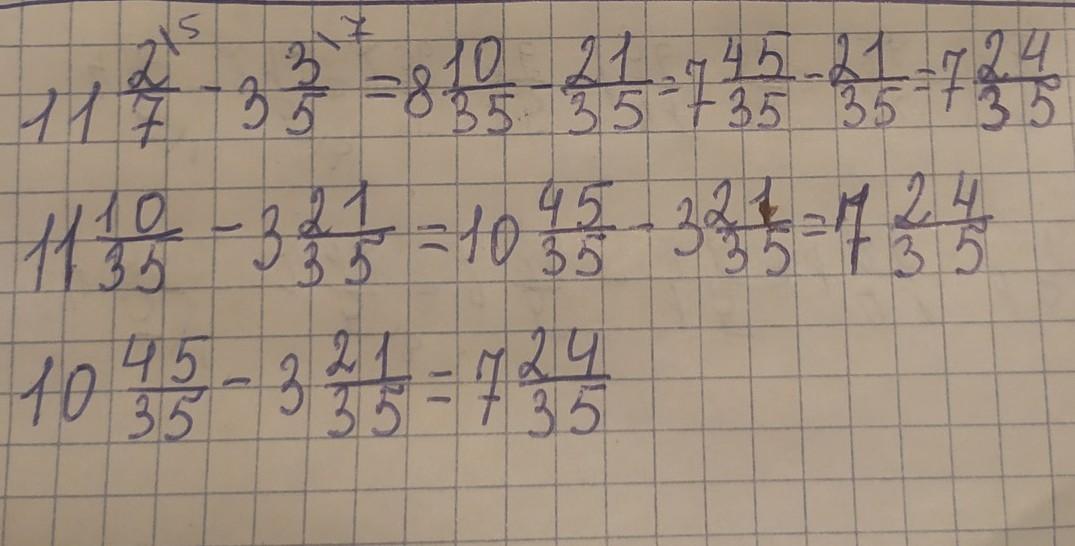 11 2\5/7 - 3 3\7/5 = 8 10/35 - 21/35 = 7 45/35 - 21/35 = 7 24/35
11 10/35 - 3 21/35 = 10 45/35 - 3 21/35 = 7 24/35
10 45/35 - 3 21/35 = 7 24/35